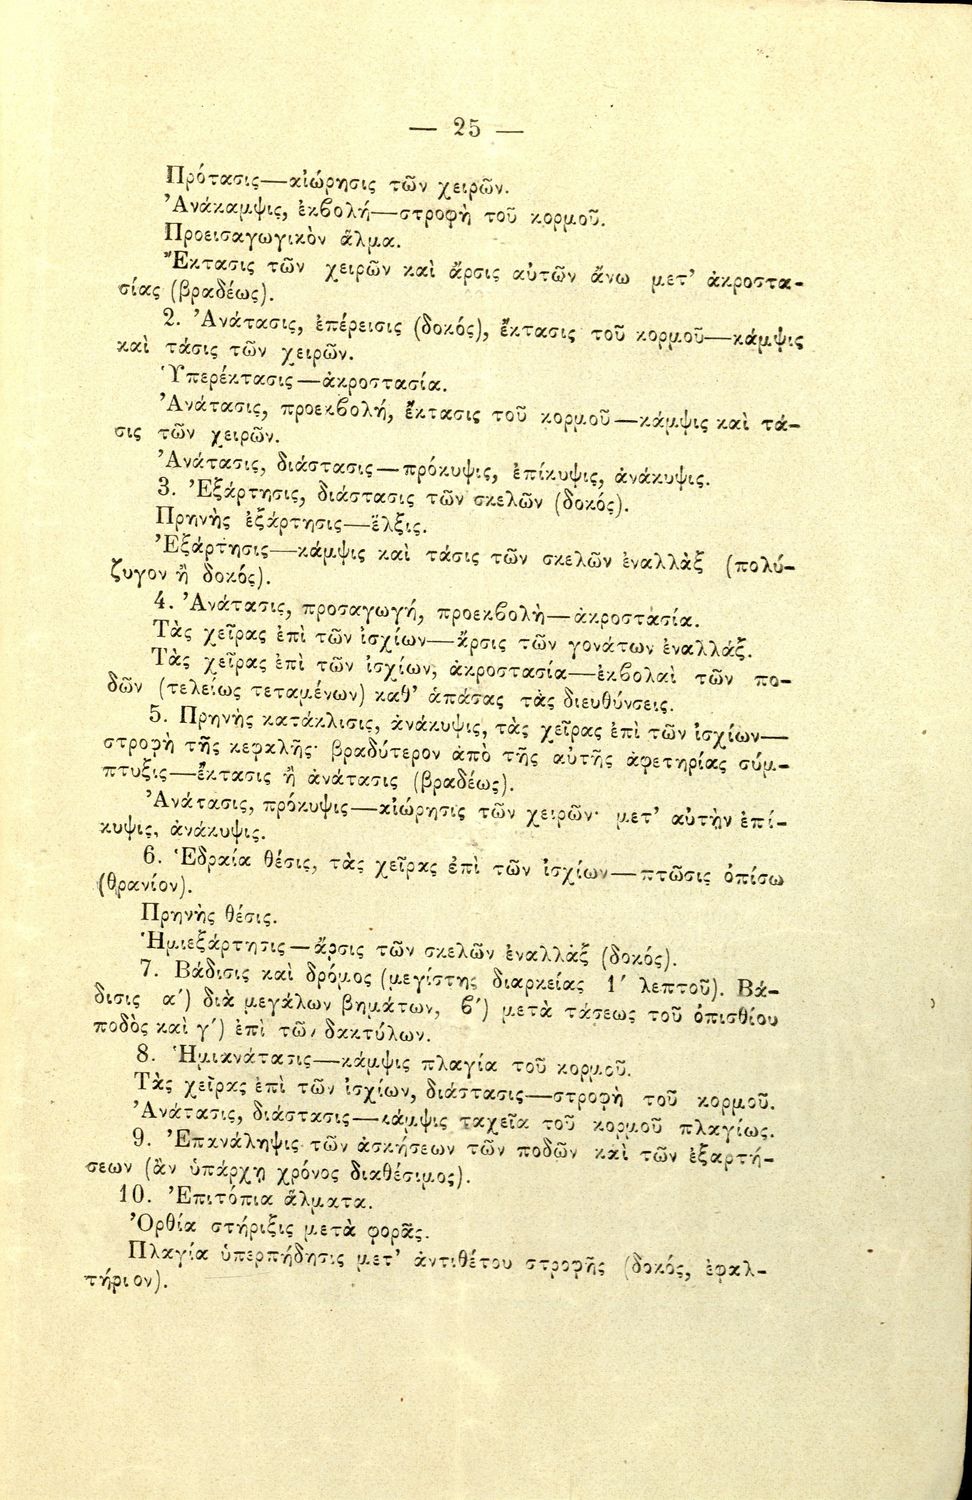 — 25 —
Πρότασις—αἰώρησις τῶν χειρῶν.
Ἀνάκαμψις, ἐκβολή—στροφὴ τοῦ κορμοῦ.
Προεισαγωγικὸν ἅλμα.
Ἔκτασις τῶν χειρῶν καὶ ἄρσις αὐτῶν ἄνω μετ' ἀκροστα-
σίας (βραδέως).
2. Ἀνάτασις, ἐπέρεισις (δοκός), ἔκτασις τοῦ κορμοῦ—κάμψις
καὶ τάσις τῶν χειρῶν.
Ὑπερέκτασις—ἀκροστασία.
Ἀνάτασις, προεκβολή, ἔκτασις τοῦ κορμοῦ—κάμψις καὶ τά-
σις τῶν χειρῶν.
Ἀνάτασις, διάστασις—πρόκυψις, ἐπίκυψις, ἀνάκυψις.
3. Ἐξάρτησις, διάστασις τῶν σκελῶν (δοκός).
Πρηνὴς ἐξάρτησις—ἕλξις.
Ἐξάρτησις—κάμψις καὶ τάσις τῶν σκελῶν ἐναλλὰξ (πολύ-
ζυγον ἢ δοκός).
4. Ἀνάτασις, προσαγωγή, προεκβολὴ—ἀκροστασία.
Τὰς χεῖρας ἐπὶ τῶν ἰσχίων—ἄρσις τῶν γονάτων ἐναλλάξ.
Τὰς χεῖρας ἐπὶ τῶν ἰσχίων, ἀκροστασία—ἐκβολαὶ τῶν πο-
δῶν (τελείως τεταμένων) καθ' ἁπάσας τὰς διευθύνσεις.
5. Πρηνὴς κατάκλισις, ἀνάκυψις, τὰς χεῖρας ἐπὶ τῶν ἰσχίων—
στροφὴ τῆς κεφαλῆς· βραδύτερον ἀπὸ τῆς αὐτῆς ἀφετηρίας σύμ-
πτυξις—ἔκτασις ἢ ἀνάτασις (βραδέως).
Ἀνάτασις, πρόκυψις—αἰώρησις τῶν χειρῶν· μετ' αὐτὴν ἐπί-
κυψις, ἀνάκυψις.
6. Ἑδραία θέσις, τὰς χεῖρας ἐπὶ τῶν ἰσχίων—πτῶσις ὀπίσω
(θρανίον).
Πρηνὴς θέσις.
Ἡμιεξάρτησις—ἄρσις τῶν σκελῶν ἐναλλὰξ (δοκός).
7. Βάδισις καὶ δρόμος (μεγίστης διαρκείας 1′ λεπτοῦ). Βά-
δισις α′) διὰ μεγάλων βημάτων, β′) μετὰ τάσεως τοῦ ὀπισθίου
ποδὸς καὶ γ′) ἐπὶ τῶν δακτύλων.
8. Ἡμιανάτασις—κάμψις πλαγία τοῦ κορμοῦ.
Τὰς χεῖρας ἐπὶ τῶν ἰσχίων, διάστασις—στροφὴ τοῦ κορμοῦ.
Ἀνάτασις, διάστασις—κάμψις ταχεῖα τοῦ κορμοῦ πλαγίως.
9. Ἐπανάληψις τῶν ἀσκήσεων τῶν ποδῶν καὶ τῶν ἐξαρτή-
σεων (ἂν ὑπάρχῃ χρόνος διαθέσιμος).
10. Ἐπιτόπια ἅλματα.
Ὀρθία στήριξις μετὰ φορᾶς.
Πλαγία ὑπερπήδησις μετ' ἀντιθέτου στροφῆς (δοκός, ἐφαλ-
τήριον).